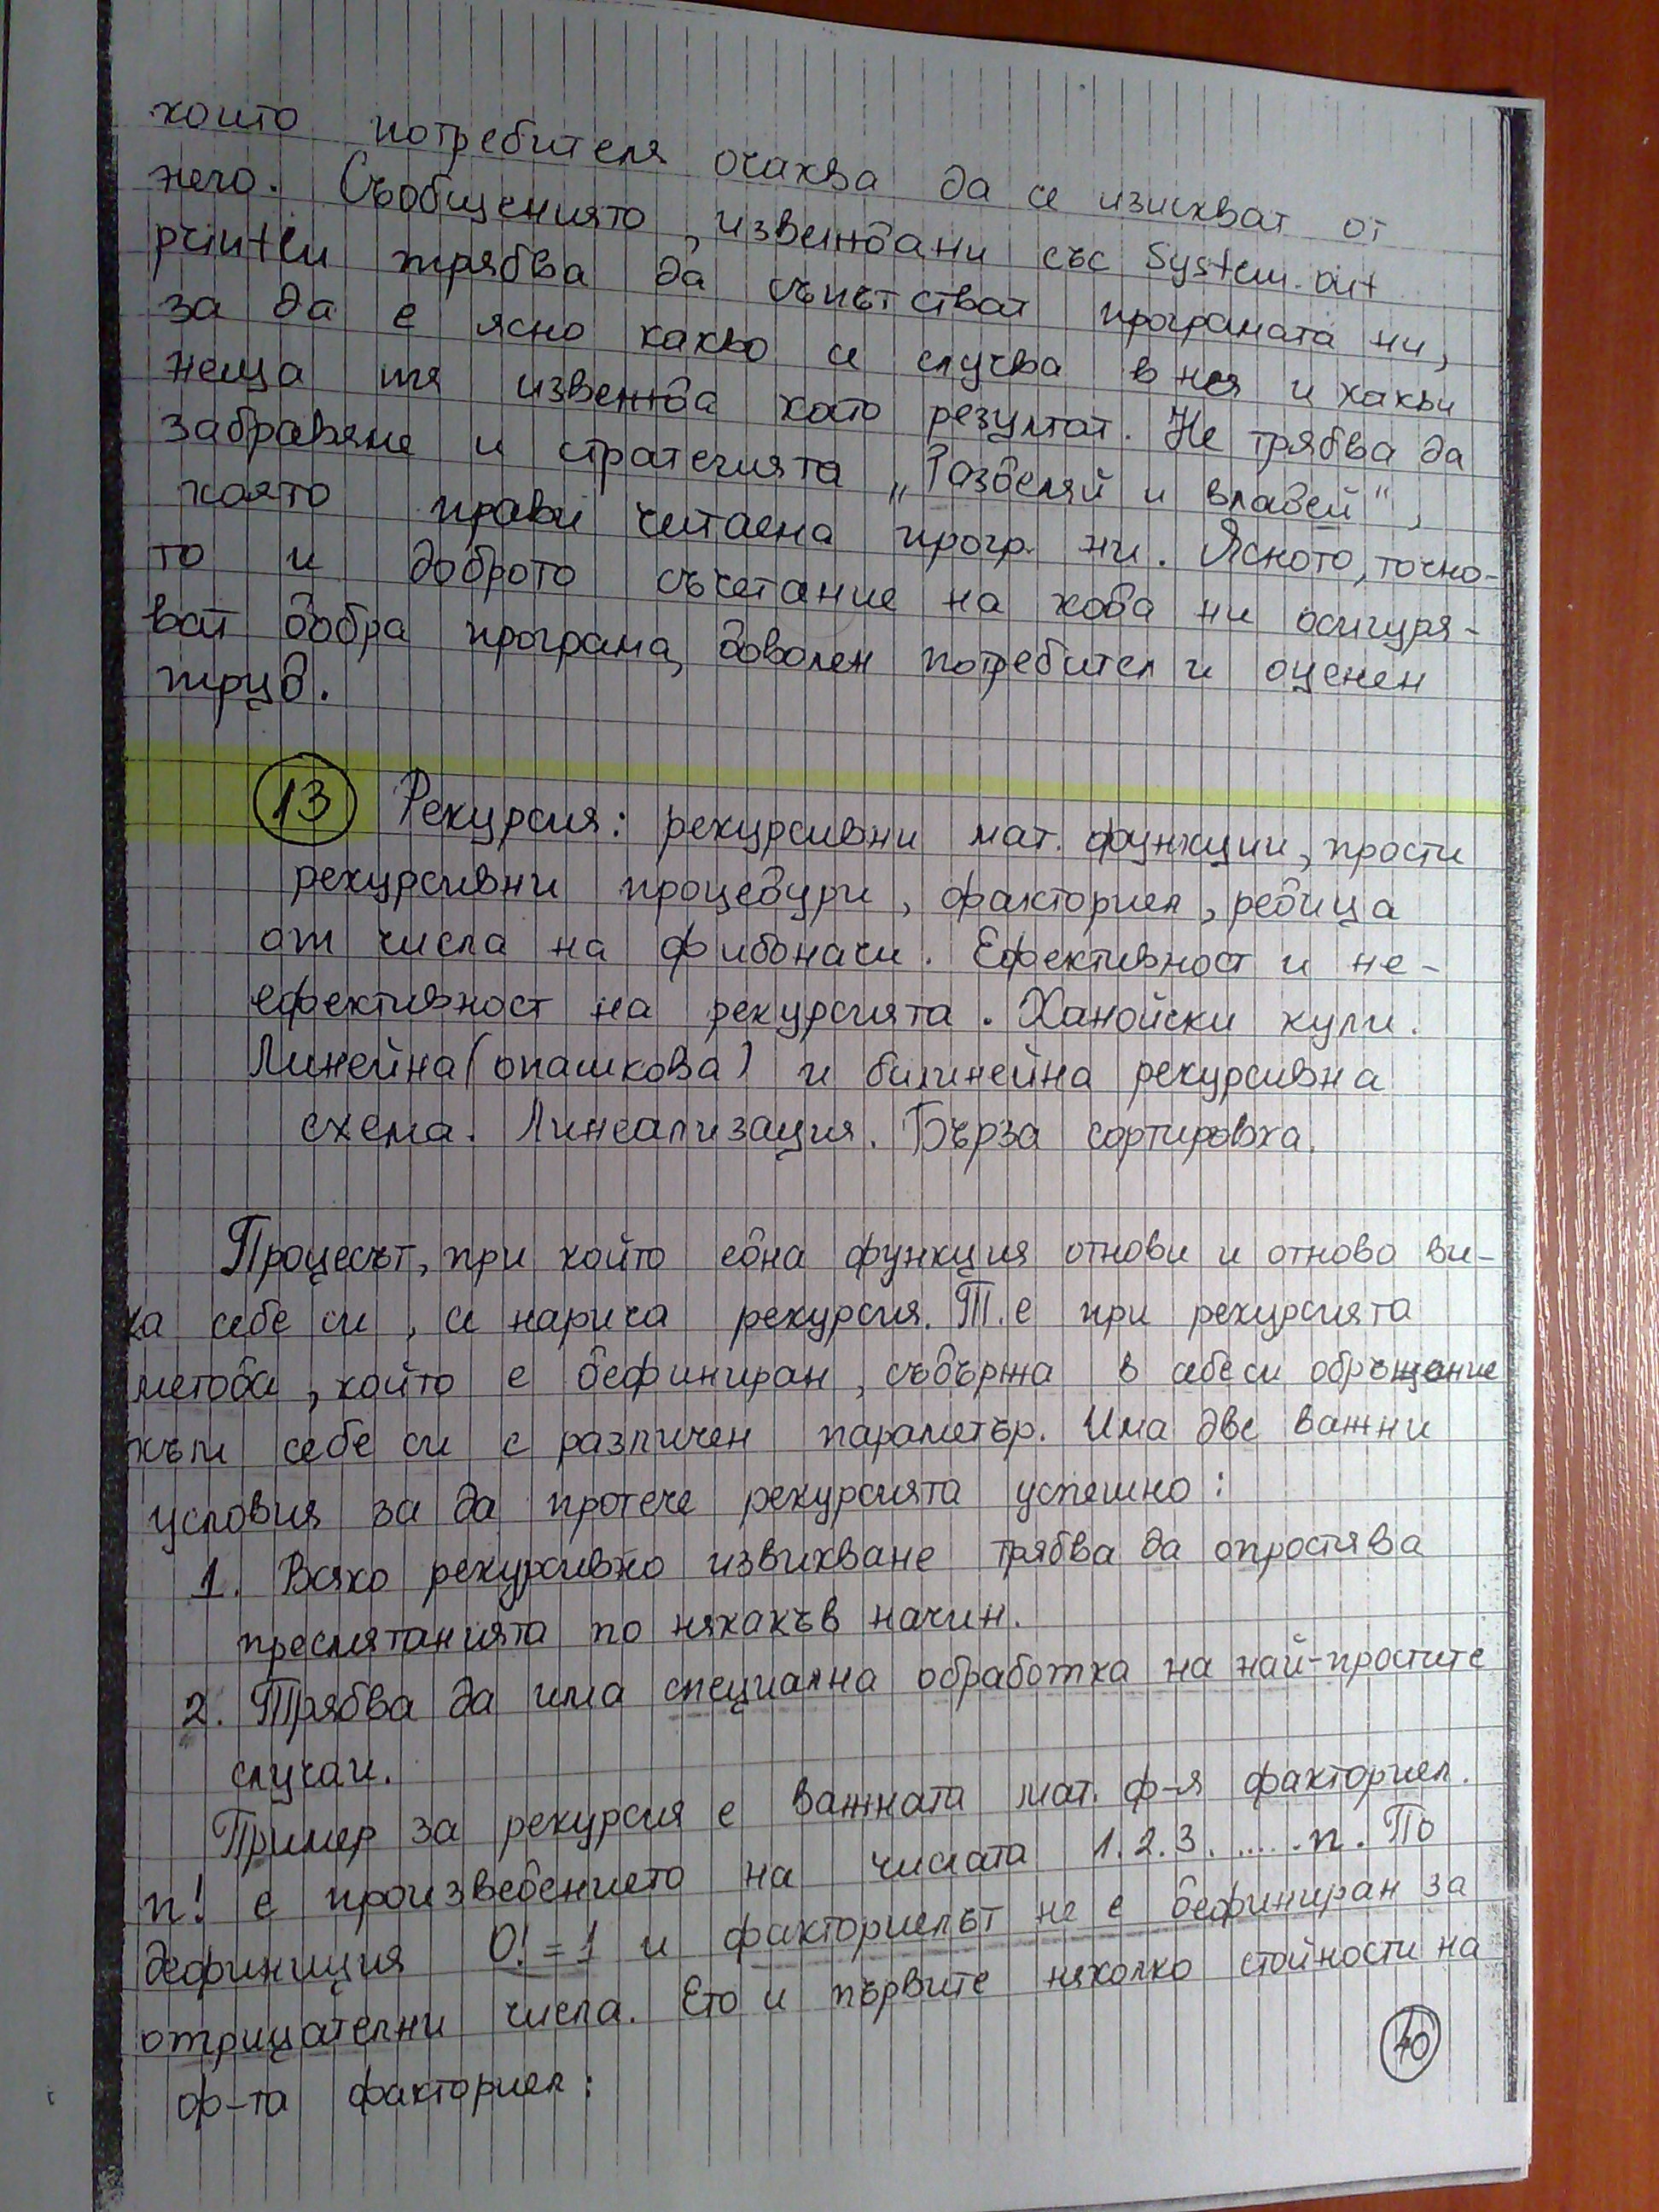 които потребителя очаква да се изискват от
него. Съобщенията, извеждани със System.out
println трябва да съпътстват програмата ни,
за да е ясно какво се случва в нея и какви
неща тя извежда като резултат. Не трябва да
забравяме и стратегията „Разделяй и владей",
която прави четаема прогр. ни. Ясното, точно-
то и доброто съчетание на кода ни осигуря-
ват добра програма, доволен потребител и оценен
труд.
13 Рекурсия: рекурсивни мат. функции, прости
рекурсивни процедури, факториел, редица
от числа на Фибоначи. Ефективност и не-
ефективност на рекурсията. Ханойски кули.
Линейна (опашкова) и билинейна рекурсивна
схема. Линеализация. Бърза сортировка.
Процесът, при който една функция отнови и отново ви-
ка себе си, се нарича рекурсия. Т.е при рекурсията
метода, който е дефиниран, съдържа в себе си обръщение
към себе си с различен параметър. Има две важни
условия за да протече рекурсията успешно:
1. Всяко рекурсивно извикване трябва да опростява
пресмятанията по някакъв начин.
2. Трябва да има специална обработка на най-простите
случаи.
Пример за рекурсия е важната мат. ф-я факториел.
n! е произведението на числата 1.2.3. .....n. По
дефиниция 0! = 1 и факториелът не е дефиниран за
отрицателни числа. Ето и първите няколко стойности на
ф-та факториел:
40